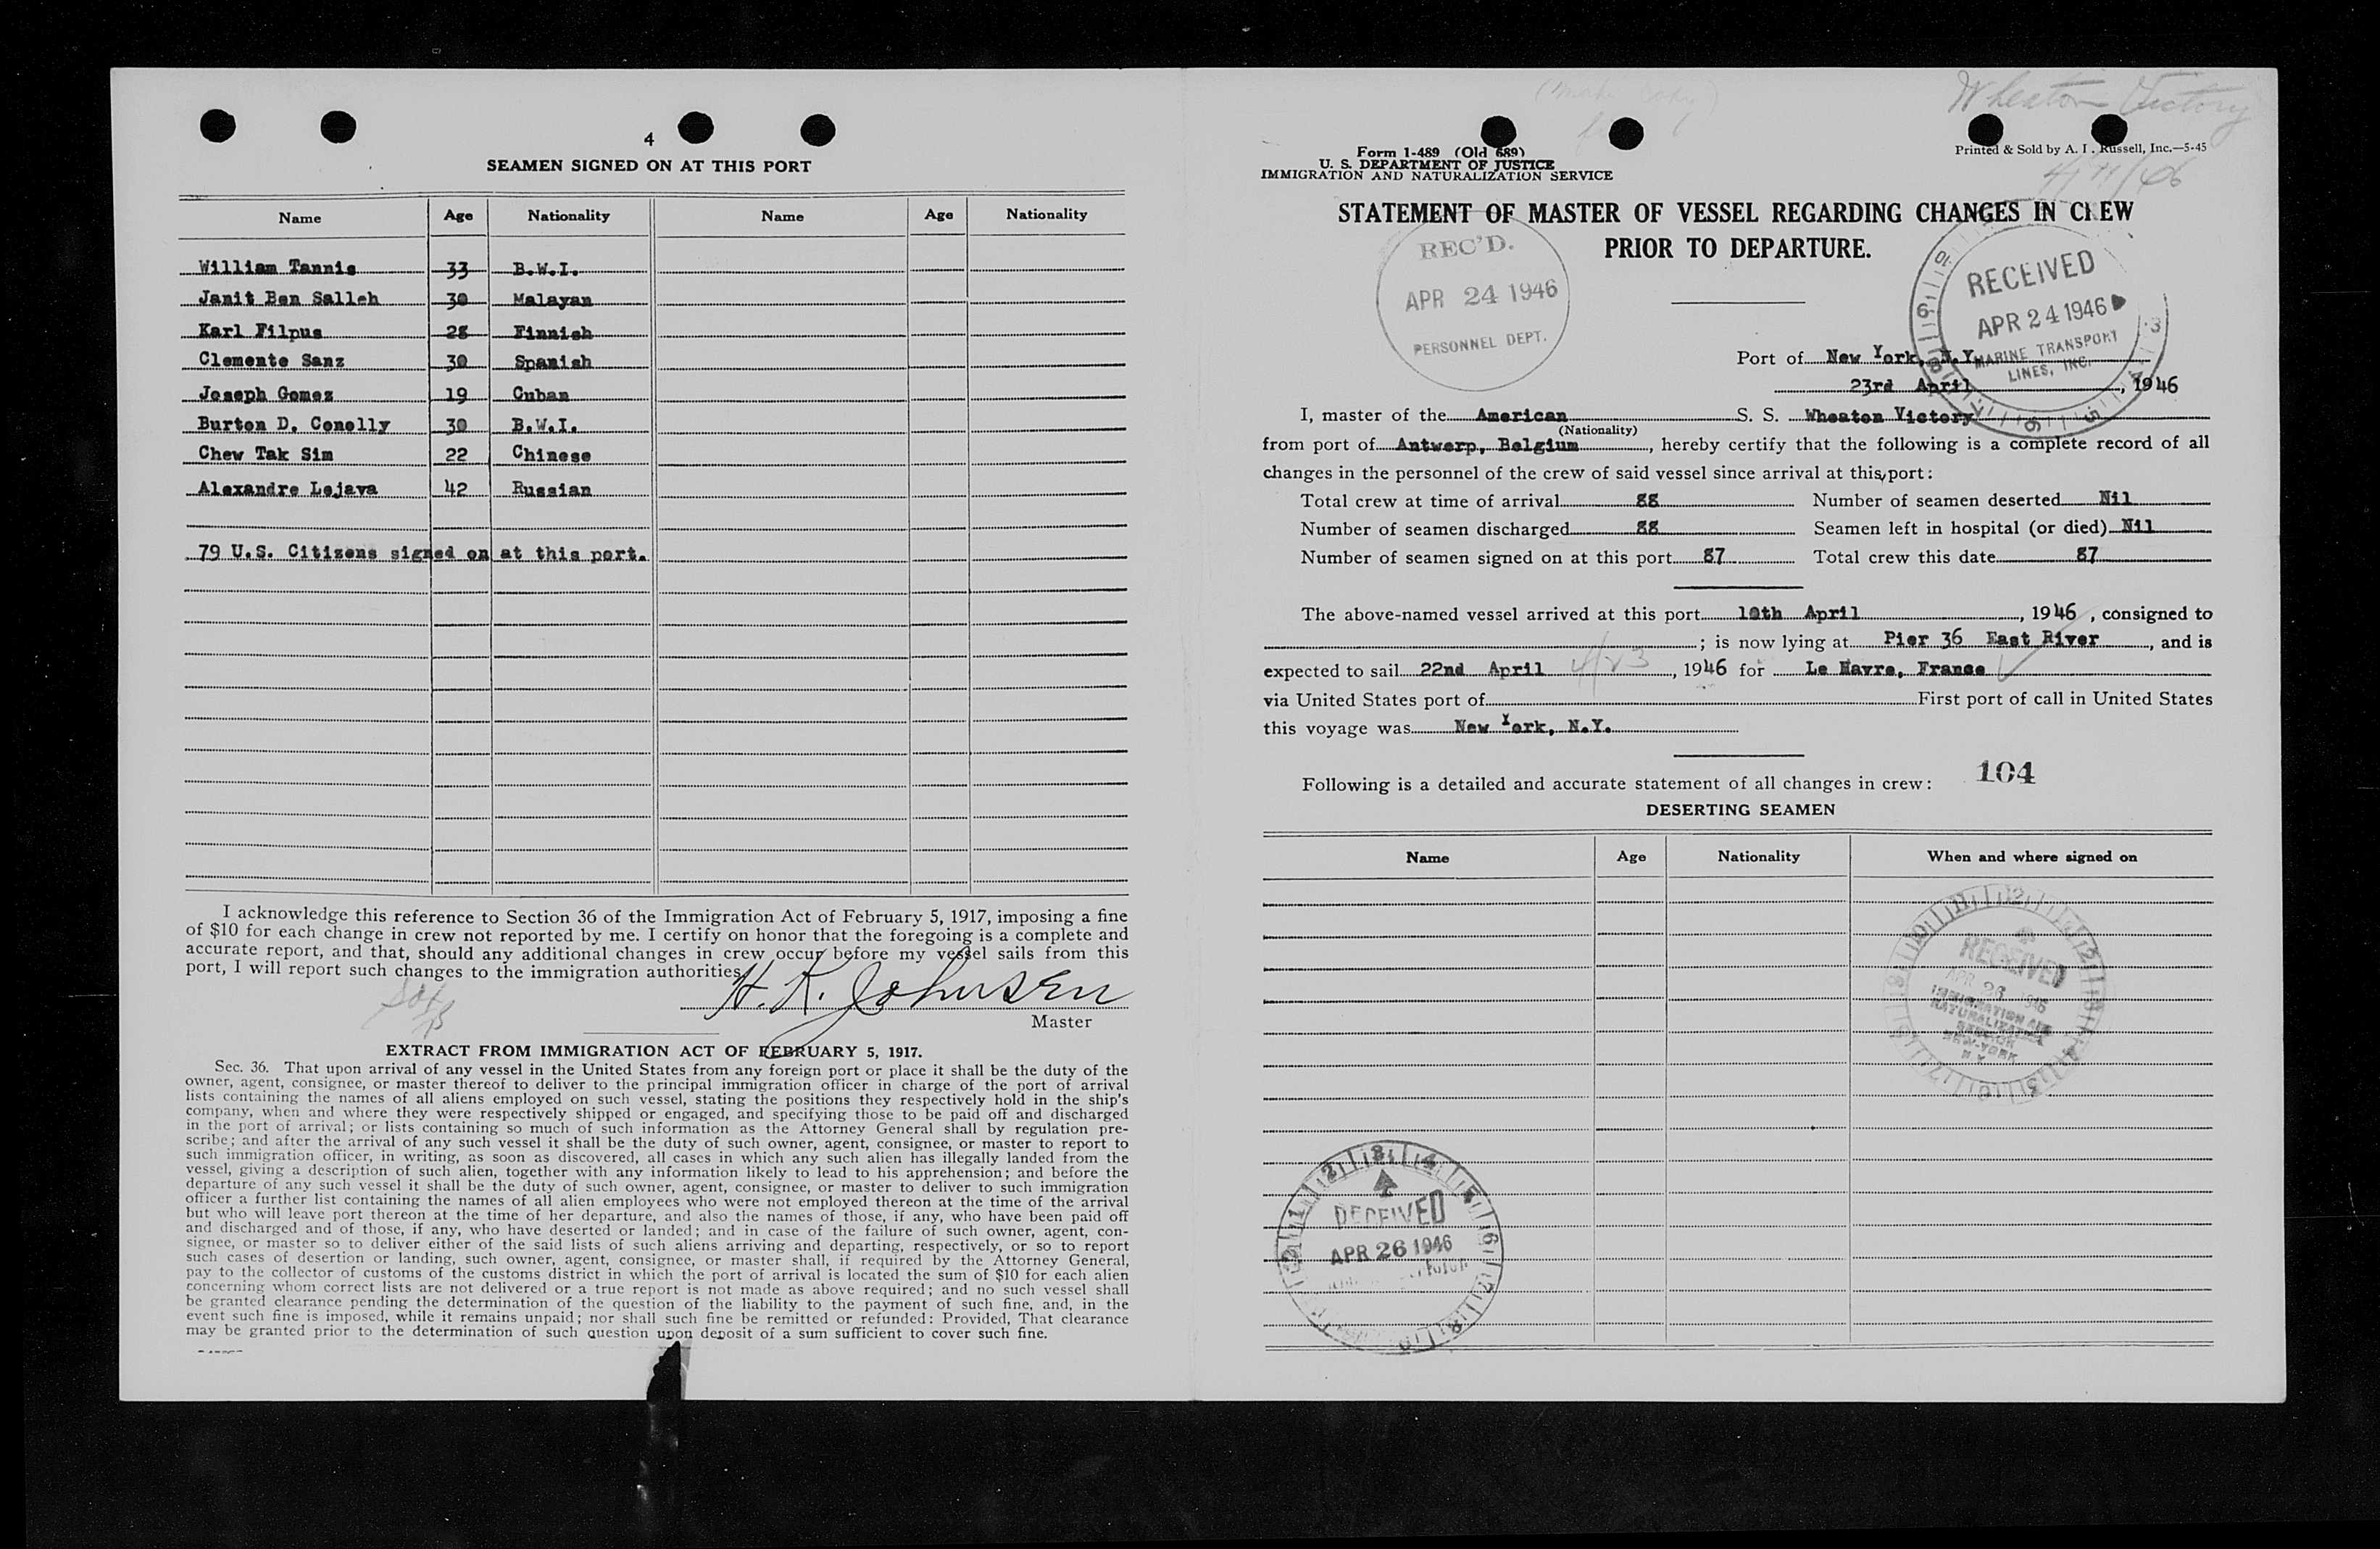 4
SEAMEN SIGNED ON AT THIS PORT
Name Age Nationality Name Age Nationality
William Tannis 33 B.W.I.
Janit Ben Salleh 30 Malayan
Karl Filpus 28 Finnish
Clemente Sanz 30 Spanish
Joseph Gomez 19 Cuban
Burton D. Conolly 30 B.W.I.
Chew Tak Sim 22 Chinese
Alexandre Lejava 42 Russian
79 U.S. Citizens signed on at this port.
I acknowledge this reference to Section 36 of the Immigration Act of February 5, 1917, imposing a fine
of $10 for each change in crew not reported by me. I certify on honor that the foregoing is a complete and
accurate report, and that, should any additional changes in crew occur before my vessel sails from this
port, I will report such changes to the immigration authorities.
H. K. Johnsen
Master
EXTRACT FROM IMMIGRATION ACT OF FEBRUARY 5, 1917.
Sec. 36. That upon arrival of any vessel in the United States from any foreign port or place it shall be the duty of the
owner, agent, consignee, or master thereof to deliver to the principal immigration officer in charge of the port of arrival
lists containing the names of all aliens employed on such vessel, stating the positions they respectively hold in the ship's
company, when and where they were respectively shipped or engaged, and specifying those to be paid off and discharged
in the port of arrival; or lists containing so much of such information as the Attorney General shall by regulation pre-
scribe; and after the arrival of any such vessel it shall be the duty of such owner, agent, consignee, or master to report to
such immigration officer, in writing, as soon as discovered, all cases in which any such alien has illegally landed from the
vessel, giving a description of such alien, together with any information likely to lead to his apprehension; and before the
departure of any such vessel it shall be the duty of such owner, agent, consignee, or master to deliver to such immigration
officer a further list containing the names of all alien employees who were not employed thereon at the time of the arrival
but who will leave port thereon at the time of her departure, and also the names of those, if any, who have been paid off
and discharged and of those, if any, who have deserted or landed; and in case of the failure of such owner, agent, con-
signee, or master so to deliver either of the said lists of such aliens arriving and departing, respectively, or so to report
such cases of desertion or landing, such owner, agent, consignee, or master shall, if required by the Attorney General,
pay to the collector of customs of the customs district in which the port of arrival is located the sum of $10 for each alien
concerning whom correct lists are not delivered or a true report is not made as above required; and no such vessel shall
be granted clearance pending the determination of the question of the liability to the payment of such fine, and, in the
event such fine is imposed, while it remains unpaid; nor shall such fine be remitted or refunded: Provided, That clearance
may be granted prior to the determination of such question upon deposit of a sum sufficient to cover such fine.
Wheaton Victory
Form 1-489 (Old 689)
U. S. DEPARTMENT OF JUSTICE
IMMIGRATION AND NATURALIZATION SERVICE
Printed & Sold by A. I. Russell, Inc.—5-45
STATEMENT OF MASTER OF VESSEL REGARDING CHANGES IN CREW
PRIOR TO DEPARTURE.
REC'D.
APR 24 1946
PERSONNEL DEPT.
RECEIVED
APR 24 1946
MARINE TRANSPORT
LINES, INC.
Port of New York, N.Y.
23rd April, 1946
I, master of the American S. S. Wheaton Victory
(Nationality)
from port of Antwerp, Belgium, hereby certify that the following is a complete record of all
changes in the personnel of the crew of said vessel since arrival at this port:
Total crew at time of arrival 88 Number of seamen deserted Nil
Number of seamen discharged 88 Seamen left in hospital (or died) Nil
Number of seamen signed on at this port 87 Total crew this date 87
The above-named vessel arrived at this port 10th April, 1946, consigned to
; is now lying at Pier 36 East River, and is
expected to sail 22nd April 4/23, 1946 for Le Havre, France
via United States port of First port of call in United States
this voyage was New York, N.Y.
Following is a detailed and accurate statement of all changes in crew: 104
DESERTING SEAMEN
Name Age Nationality When and where signed on
RECEIVED
APR 26 1946
IMMIGRATION AND
NATURALIZATION
SERVICE
NEW-YORK
N Y
RECEIVED
APR 26 1946